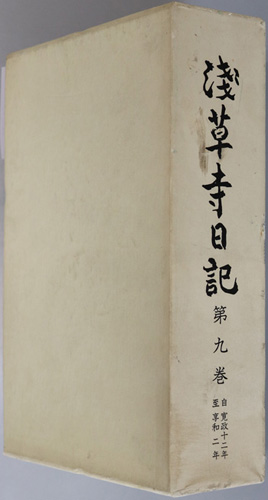 淺草寺日記
第九巻
自寛政十二年
至享和二年